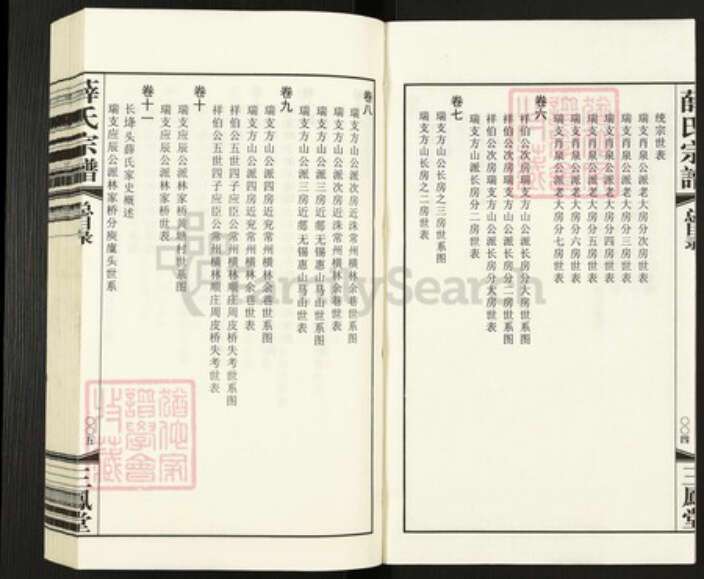 薛氏宗谱
总目录
〇〇四
三凤堂
统宗世表
瑞支肖泉公派老大房分次房世表
瑞支肖泉公派老大房分三房世表
瑞支肖泉公派老大房分四房世表
瑞支肖泉公派老大房分五房世表
瑞支肖泉公派老大房分六房世表
瑞支肖泉公派老大房分七房世表
卷六
祥伯公次房瑞支方山公派长房分大房世系图
祥伯公次房瑞支方山公派长房分二房世系图
祥伯公次房瑞支方山公派长房分大房世表
瑞支方山派长房分二房世表
卷七
瑞支方山公长房之三房世系图
瑞支方山长房之二房世表
卷八
瑞支方山公派次房近洙常州横林余巷世系图
瑞支方山公派次房近洙常州横林余巷世表
瑞支方山公派三房近鄢无锡惠山马山世系图
瑞支方山公派三房近鄢无锡惠山马山世表
卷九
瑞支方山公派四房近兖常州横林余巷世系图
瑞支方山公派四房近兖常州横林余巷世表
祥伯公五世四子应臣公常州横林顺庄周皮桥失考世系图
祥伯公五世四子应臣公常州横林顺庄周皮桥失考世表
卷十
瑞支应辰公派林家桥 世系图
瑞支应辰公派林家桥世表
卷十一
长沟头薛氏家史概述
瑞支应辰公派林家桥分 头世系
薛氏宗谱
总目录
〇〇五
三凤堂
FamilySearch